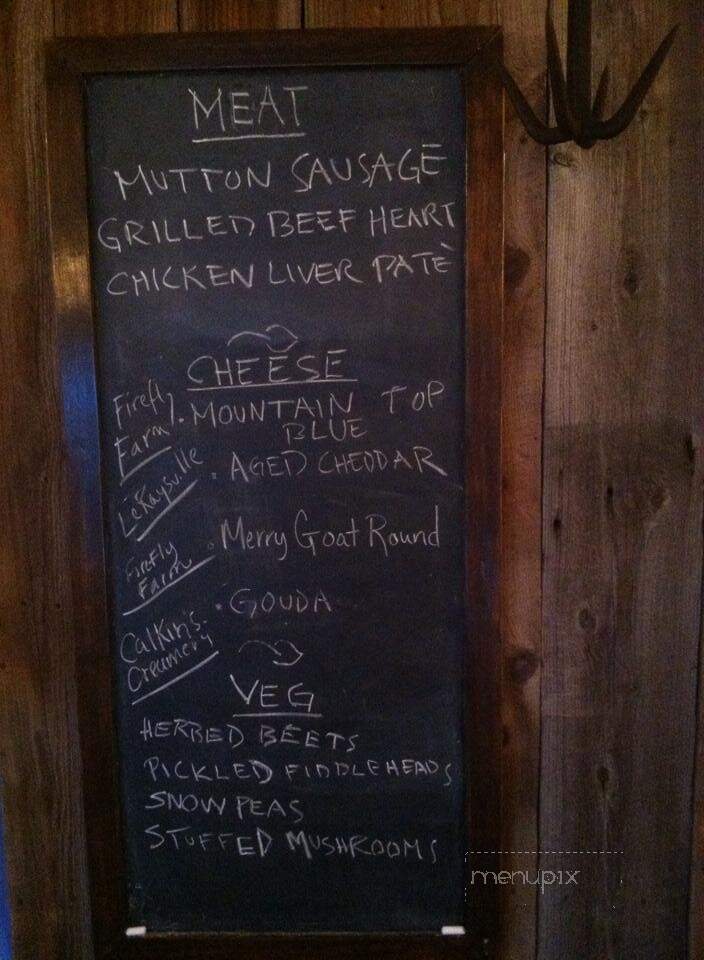 MEAT
MUTTON SAUSAGE
GRILLED BEEF HEART
CHICKEN LIVER PATÈ
CHEESE
Firefly Farm · MOUNTAIN TOP
BLUE
LeRaysville · AGED CHEDDAR
Firefly Farm · Merry Goat Round
Calkin's Creamery · GOUDA
VEG
HERBED BEETS
PICKLED FIDDLEHEADS
SNOW PEAS
STUFFED MUSHROOMS
menupix